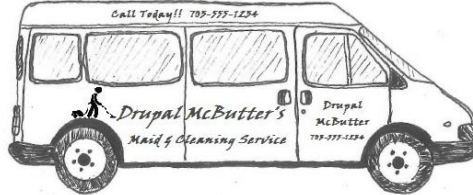 Call Today!! 703-555-1234
Drupal McButter's
Maid & Cleaning Service
Drupal
McButter
703-555-1234